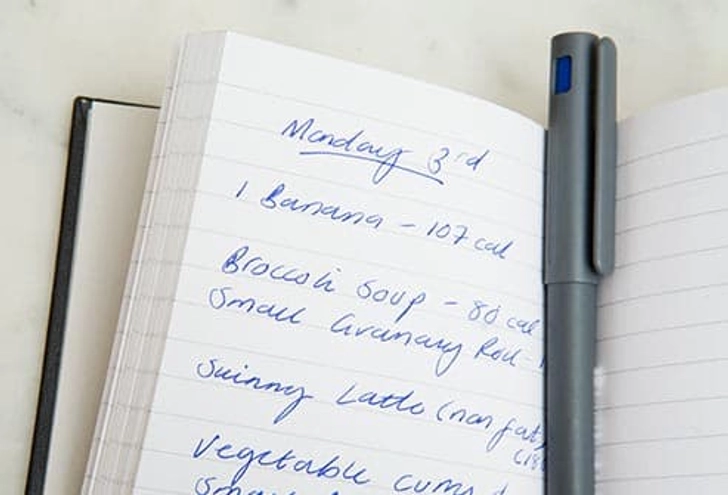 Monday 3rd
1 Banana - 107 cal
Broccoli Soup - 80 cal
Small Granary Roll -
Skinny Latte (non fat)
Vegetable
Small